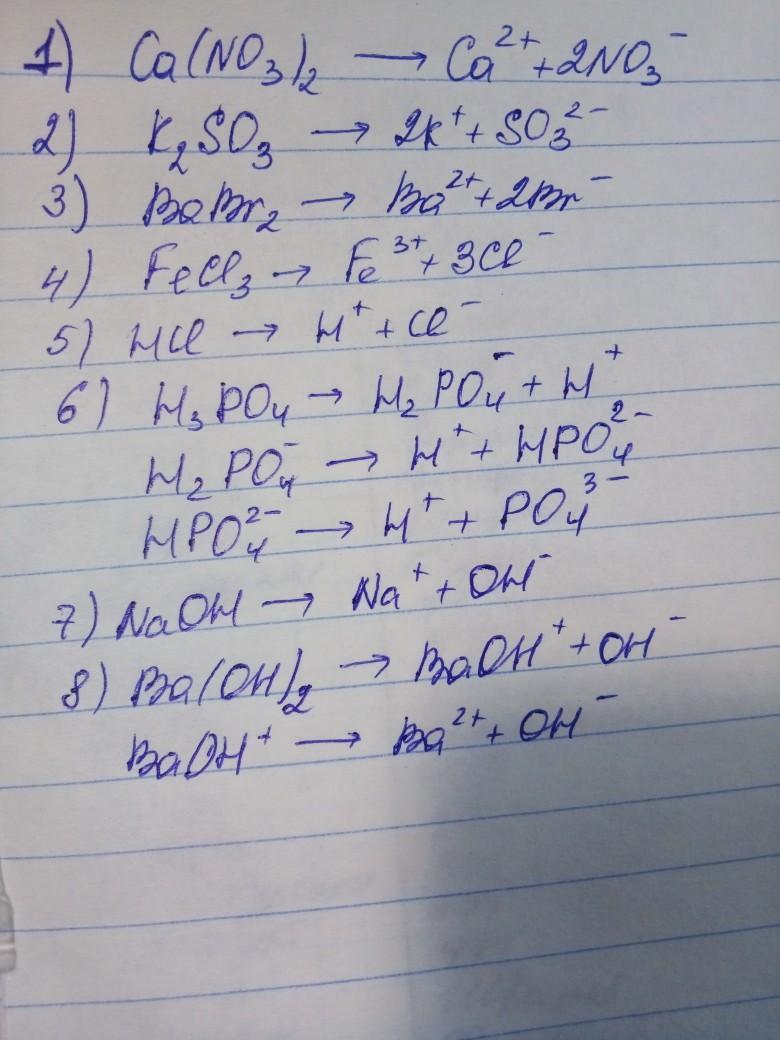 1) Ca(NO₃)₂ → Ca²⁺ + 2NO₃⁻
2) K₂SO₃ → 2K⁺ + SO₃²⁻
3) BaBr₂ → Ba²⁺ + 2Br⁻
4) FeCl₃ → Fe³⁺ + 3Cl⁻
5) HCl → H⁺ + Cl⁻
6) H₃PO₄ → H₂PO₄⁻ + H⁺
H₂PO₄⁻ → H⁺ + HPO₄²⁻
HPO₄²⁻ → H⁺ + PO₄³⁻
7) NaOH → Na⁺ + OH⁻
8) Ba(OH)₂ → BaOH⁺ + OH⁻
BaOH⁺ → Ba²⁺ + OH⁻